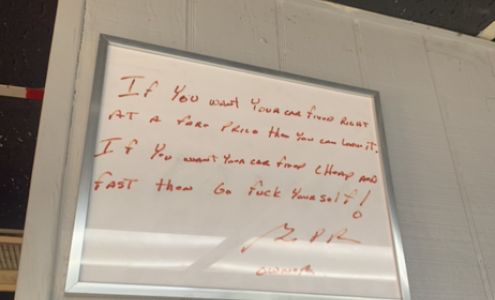 If You want Your car fixed Right
AT A fare Price then You can leave it.
If You want Your car fixed cheap AND
fast then Go fuck Yourself!
owner